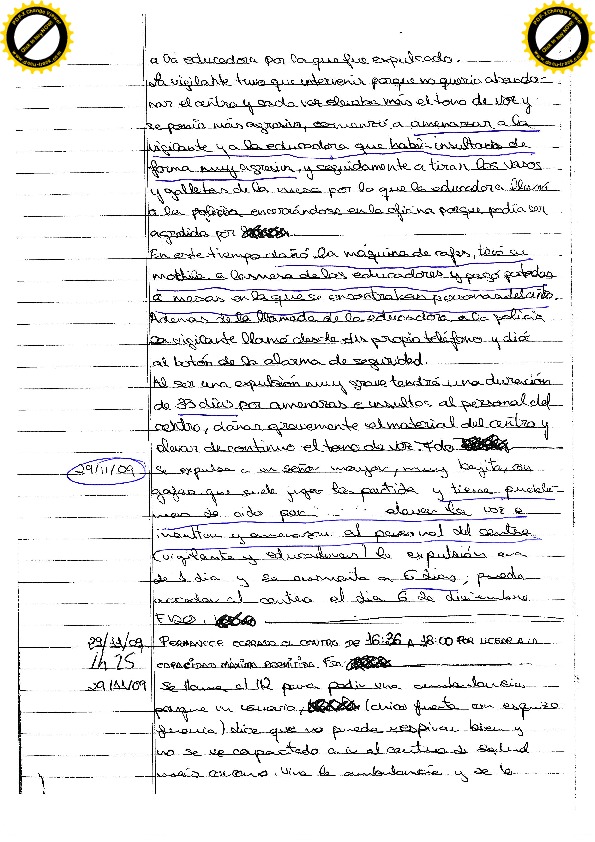 a la educadora por la que fue expulsado.
La vigilante tuvo que intervenir porque no quería abando-
nar el centro y cada vez elevaba más el tono de voz y
se ponía más agresivo, comenzó a amenazar a la
vigilante y a la educadora que había insultado de
forma muy agresiva, y seguidamente a tirar los vasos
y galletas de la mesa por lo que la educadora llamó
a la policía encerrándose en la oficina porque podía ser
agredida por
En este tiempo dañó la máquina de cafés, tiró su
mochila a la mesa de los educadores y pegó patadas
a mesas en la que se encontraban personas del centro.
Además de la llamada de la educadora a la policía
la vigilante llamó desde su propio teléfono y dió
al botón de la alarma de seguridad.
Al ser una expulsión muy grave tendrá una duración
de 33 días por amenazas e insultos al personal del
centro, dañar gravemente el material del centro y
elevar de continuo el tono de voz. Fdo
29/11/09 Se expulsa a un señor mayor, muy bajito, con
gafas que suele jugar la partida y tiene proble-
mas de oido por elevar la voz e
insultar y amenazar al personal del centro
(vigilante y educadores) la expulsión era
de 1 dia y se aumenta a 6 dias, puede
acceder al centro el dia 6 de diciembre
FDO.
29/11/09 PERMANECE CERRADO EL CENTRO DE 16:26 A 18:00 POR LLEGAR A LA
1h 25 CAPACIDAD MÁXIMA PERMITIDA. Fdo
29/11/09 Se llama al 112 para pedir una ambulancia
porque un usuario, (chico con esquizo
frenia) dice que no puede respirar bien y
no se ve capacitado a ir al centro de salud
más cercano. Vino la ambulancia y se le